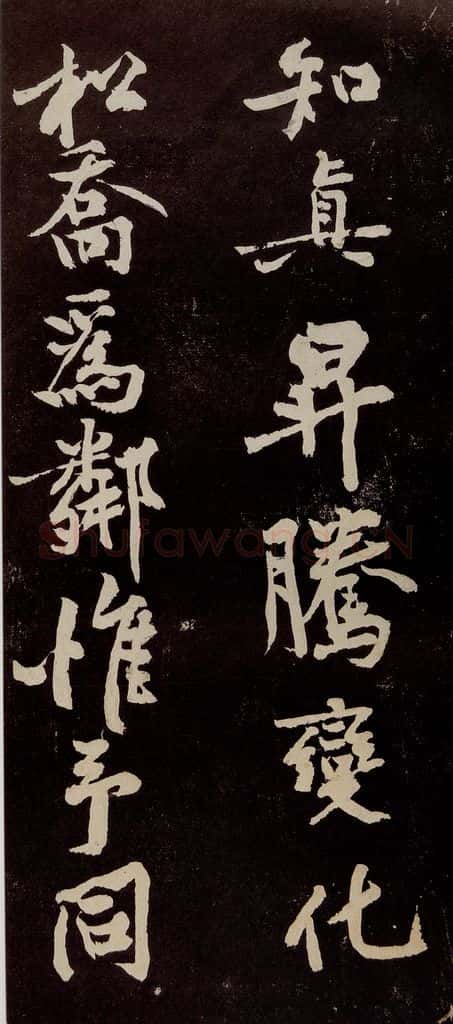 知真昇騰變化
松喬爲鄰惟予同
Shufawang.CN